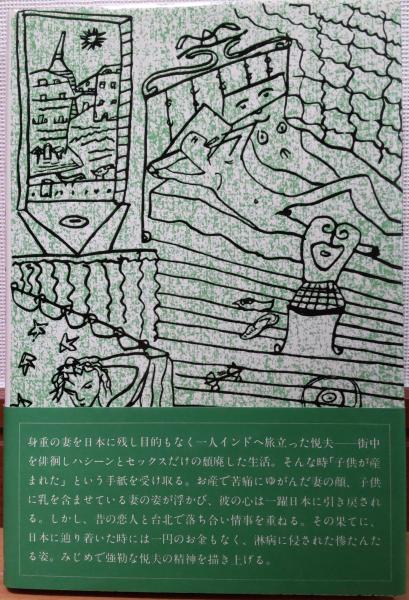 身重の妻を日本に残し目的もなく一人インドへ旅立った悦夫――街中
を俳徊しハシーンとセックスだけの頽廃した生活。そんな時「子供が産
まれた」という手紙を受け取る。お産で苦痛にゆがんだ妻の顔、子供
に乳を含ませている妻の姿が浮かび、彼の心は一躍日本に引き戻され
る。しかし、昔の恋人と台北で落ち合い情事を重ねる。その果てに、
日本に辿り着いた時には一円のお金もなく、淋病に侵された惨たんた
る姿。みじめで強靭な悦夫の精神を描き上げる。